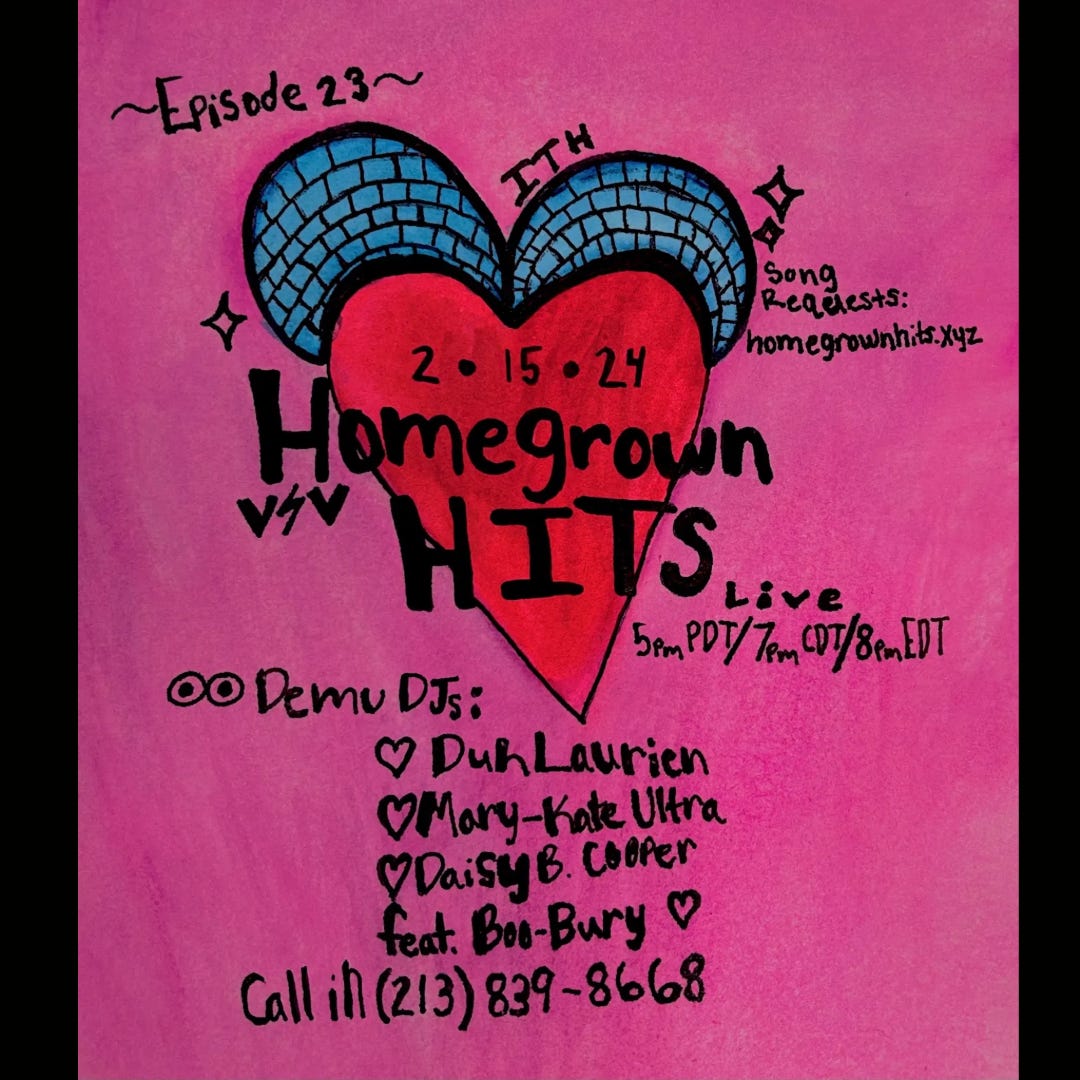 ~Episode 23~
ITH
Song
Requests:
homegrownhits.xyz
2 • 15 • 24
Homegrown
V⚡V
HITS
Live
5pm PDT/7pm CDT/8pm EDT
Demu DJs:
♡ DuhLaurien
♡ Mary-Kate Ultra
♡ Daisy B. Cooper
feat. Boo-Bury ♡
Call in (213) 839-8668